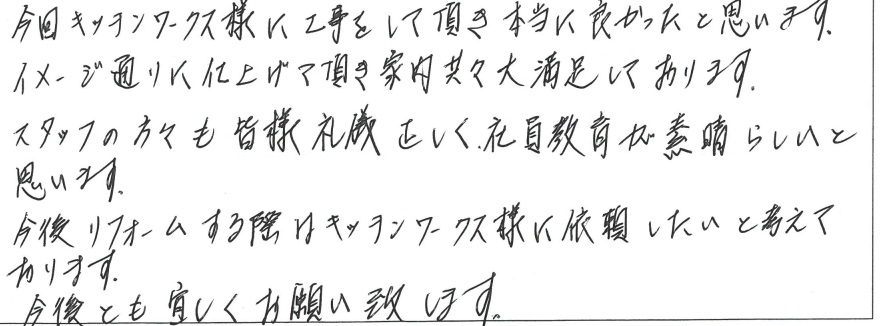 今回キッチンワークス様に工事をして頂き本当に良かったと思います。
イメージ通りに仕上げて頂き家内共々大満足しております。
スタッフの方々も皆様礼儀正しく、社員教育が素晴らしいと
思います。
今後リフォームする際はキッチンワークス様に依頼したいと考えて
おります。
今後とも宜しくお願い致します。